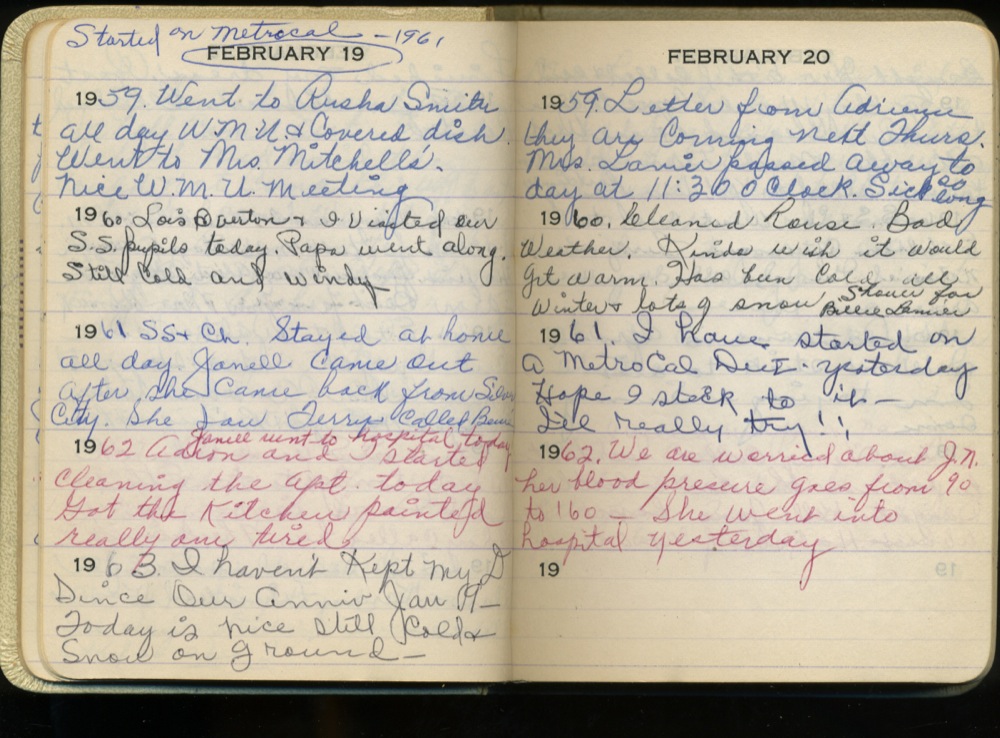 Started on Metrocal - 1961
FEBRUARY 19
1959. Went to Rusha Smith
all day W.M.U & Covered dish.
Went to Mrs. Mitchells.
Nice W.M.U. Meeting
1960. Lois Overton & I Visited our
S.S. pupils today. Papa went along.
Still Cold and Windy
1961 SS & Ch. Stayed at home
all day. Janell Came Out
after she Came back from Silver
City. She saw Terry. Called
Janell went to hospital today
1962 and I started
Cleaning the apt. today
Got the Kitchen painted
really am tired.
1963. I havent Kept my D
Since Our Anniv Jan 19 -
Today is nice still Cold &
Snow on Ground -
FEBRUARY 20
1959. Letter from
they are Coming next Thurs.
Mrs. Lanier passed away to
day at 11:30 O Clock. Sick so long
1960. Cleaned House. Bad
Weather. Kinda wish it would
get warm. Has been Cold all
Winter & lots of snow Shower for
Billie Lanier
1961. I have started on
a MetroCal Diet - yesterday
Hope I stick to it -
I'll really try!!
1962. We are worried about J.N.
her blood presure goes from 90
to 160 - She went into
hospital yesterday
19